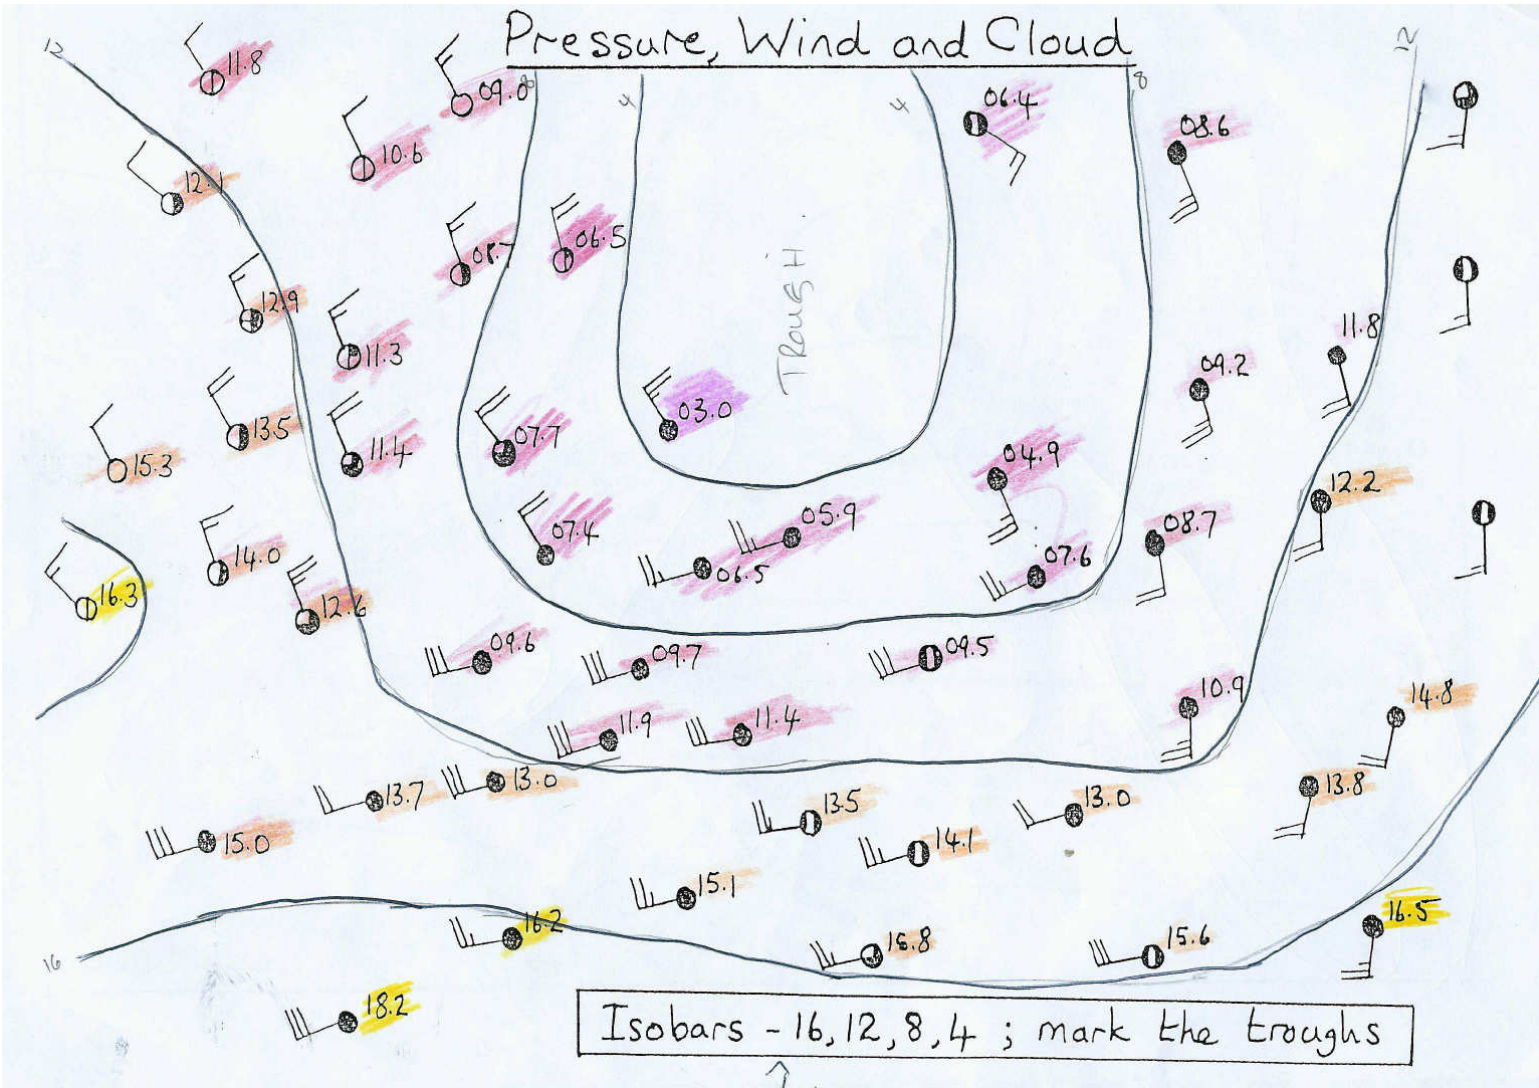 Pressure, Wind and Cloud
12
12
11.8
09.0
8
4
4
06.4
8
08.6
10.6
12.1
08.7
06.5
TROUGH
12.9
11.3
11.8
09.2
03.0
13.5
11.4
07.7
15.3
04.9
12.2
07.4
05.9
08.7
14.0
06.5
07.6
16.3
12.6
09.6
09.7
09.5
10.9
14.8
11.9
11.4
13.7
13.0
13.5
13.0
13.8
15.0
14.1
15.1
16.2
16.5
15.6
16
18.2
Isobars - 16, 12, 8, 4 ; mark the troughs